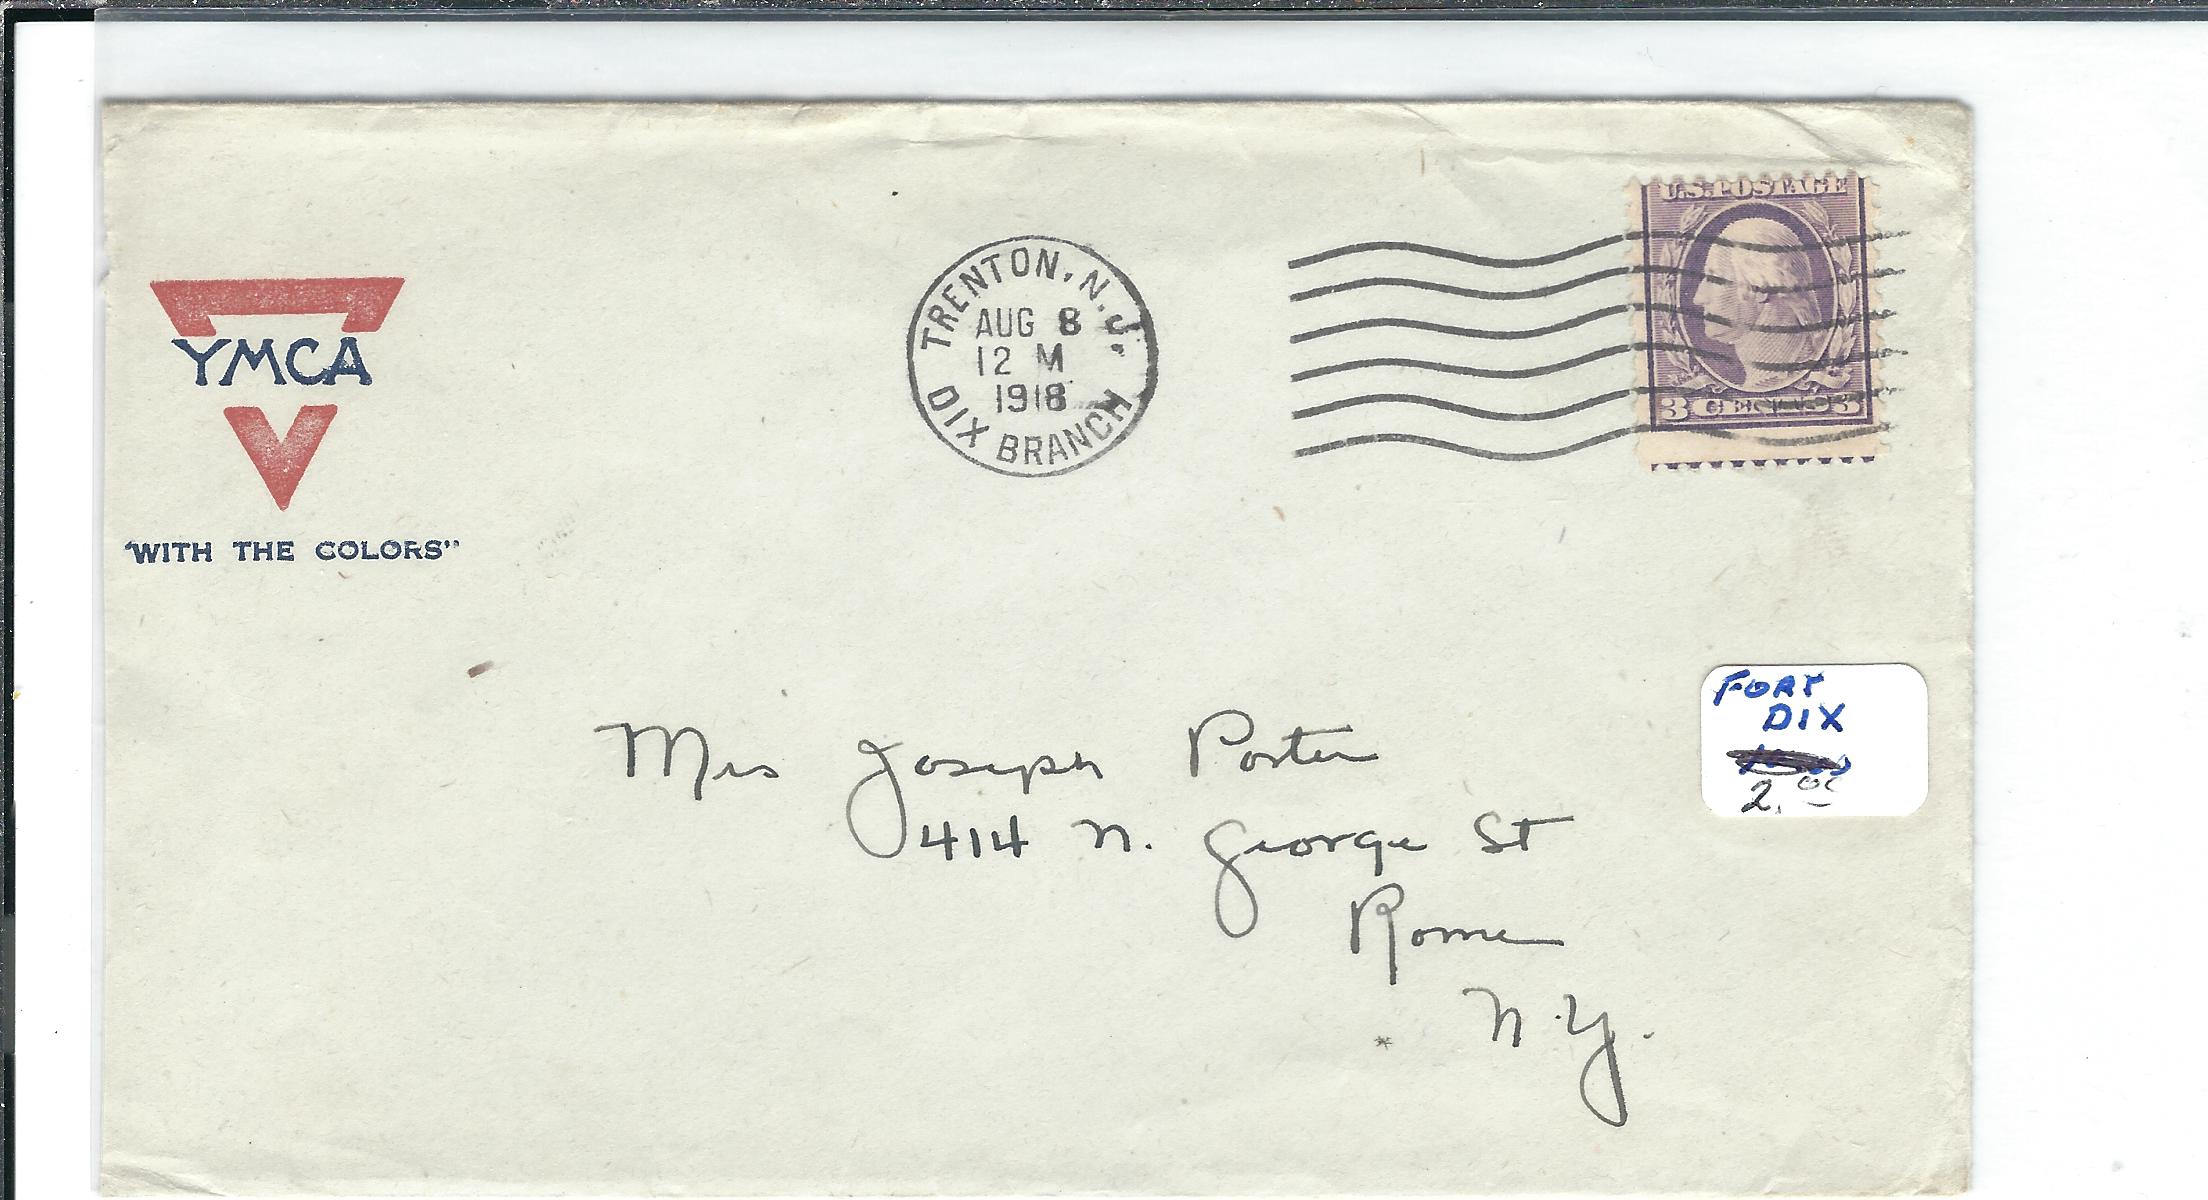 U.S. POSTAGE
3 CENTS 3
TRENTON, N.J.
AUG 8
12 M
1918
DIX BRANCH
YMCA
"WITH THE COLORS"
Mrs Joseph Porter
414 N. George St
Rome
N.Y.
FORT
DIX
2.00